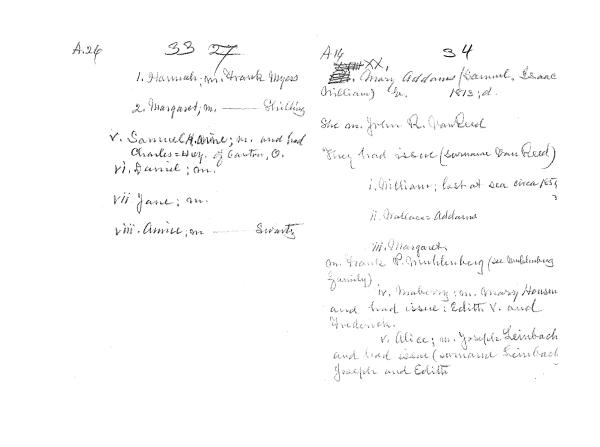 A.26
33 27
1. Hannah; m. Frank Myers
2. Margaret; m. —— Shilling
v. Samuel H.; m. and had
Charles = Wey. of Canton, O.
vi. Daniel; m.
vii Jane; m.
viii. Annie; m —— Swartz
A14
34
XX. Mary Addams (Samuel, Isaac
William) b. 1813; d.
She m. John R. VanReed
They had issue (surname Van Reed)
i. William; lost at sea circa 185
ii. Wallace = Addams
iii. Margaret
m. Frank P. Muhlenberg (see Muhlenberg
family)
iv. ; m. Mary
and had issue: Edith V. and
Frederick.
v. Alice; m. Joseph Leinbach
and had issue (surname Leinbach
Joseph and Edith